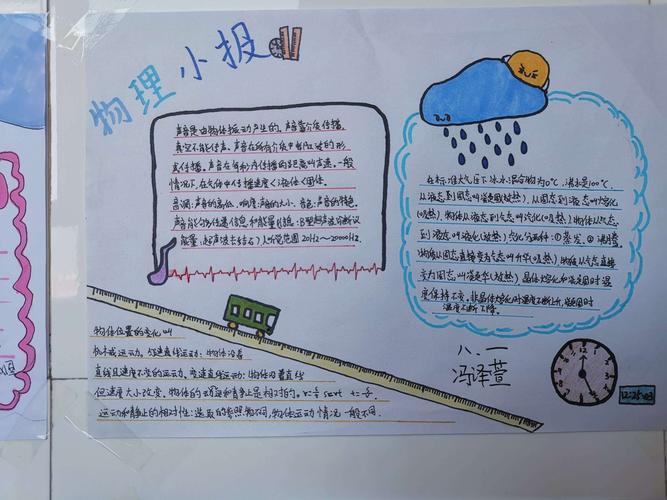 物理小报
声音是由物体振动产生的。声音靠介质传播,
真空不能传声。声音在所有介质中都以波的形
式传播。声音在每秒内传播的距离叫声速。一般
情况下,在气体中传播速度<液体<固体。
音调:声音的高低。响度:声音的大小。音色:声音的特色。
声音能够传递信息和能量
能量:超声波击结石)人听觉范围20Hz~20000Hz
在标准大气压下,冰水混合物为0℃,沸水是100℃.
从液态到固态叫凝固(放热),从固态到液态叫熔化
(吸热),物体从液态到气态叫汽化(吸热)物体从气态
到液态叫液化(放热)汽化分两种:①蒸发,②沸腾,
物体从固态直接变为气态叫升华(吸热)物体从气态直接
变为固态叫凝华(放热)晶体熔化和凝固时温
度保持不变,非晶体熔化时温度不断上升,凝固时
温度不断下降.
物体位置的变化叫
机械运动,匀速直线运动:物体沿着
直线且速度不变的运动。变速直线运动:物体沿着直线
但速度大小改变。物体的动和静止是相对的。
运动和静止的相对性:选取的参照物不同,物体运动情况一般不同.
八.一
冯泽萱
12